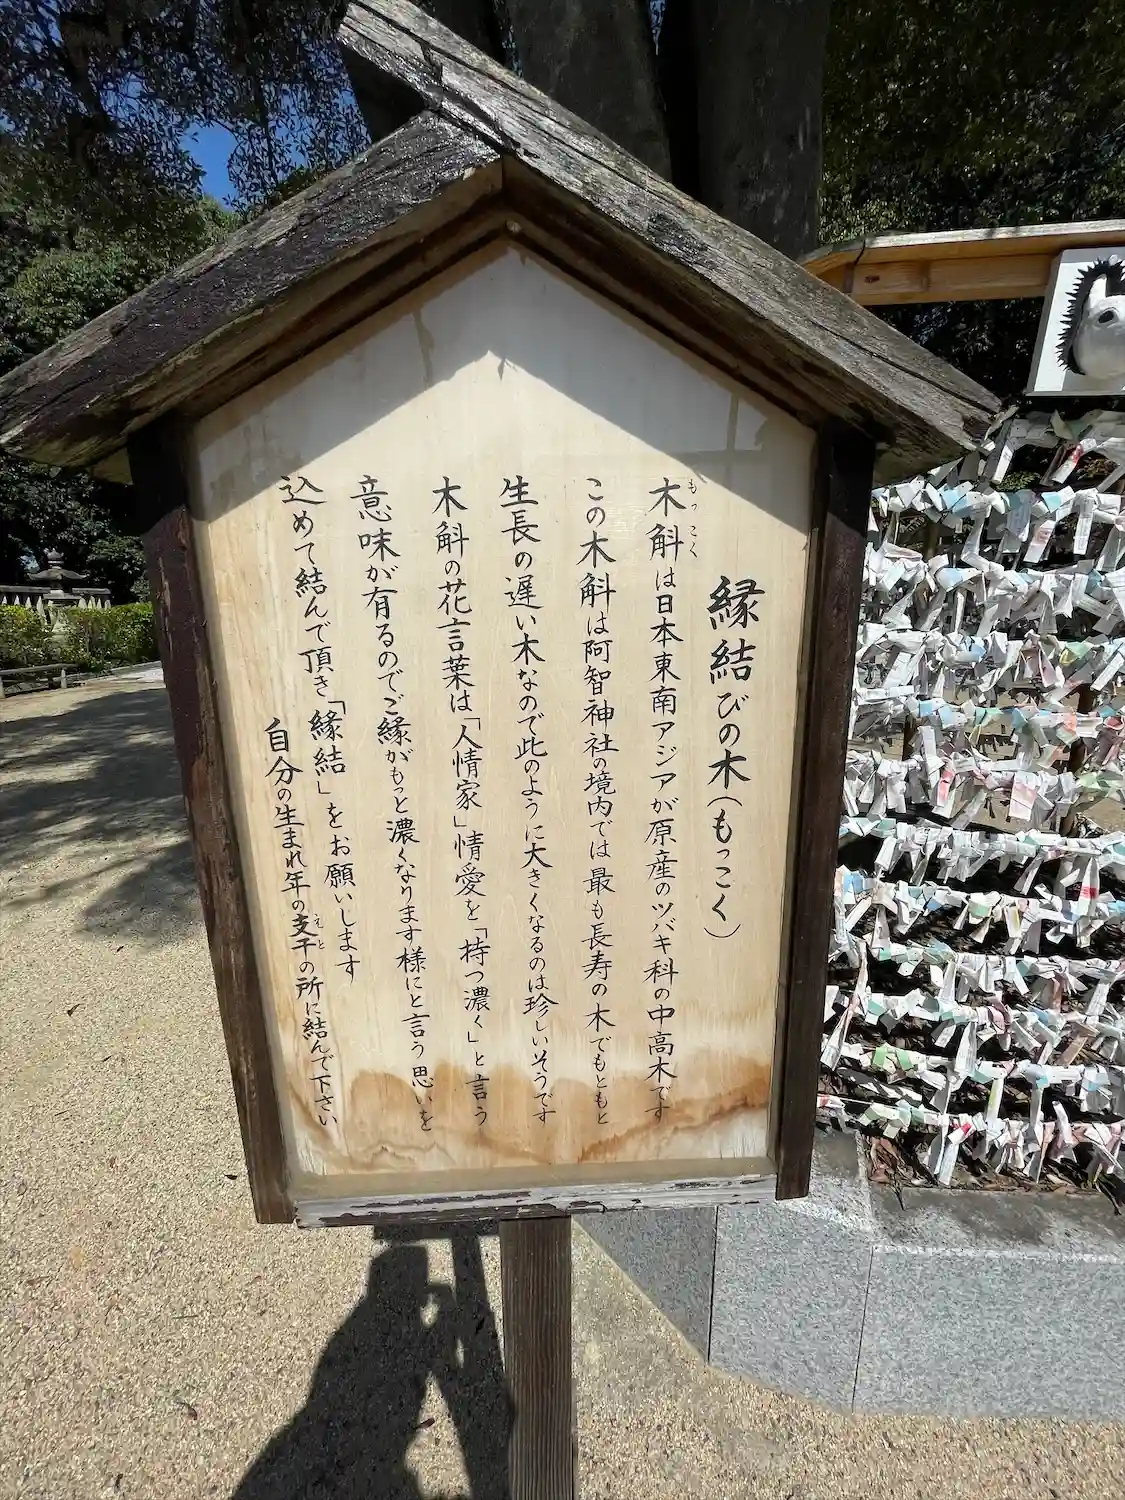 縁結びの木(もっこく)
もっこく
木斛は日本東南アジアが原産のツバキ科の中高木です
この木斛は阿智神社の境内では最も長寿の木でもともと
生長の遅い木なので此のように大きくなるのは珍しいそうです
木斛の花言葉は「人情家」情愛を「持つ濃く」と言う
意味が有るのでご縁がもっと濃くなります様にと言う思いを
込めて結んで頂き「縁結」をお願いします
えと
自分の生まれ年の支干の所に結んで下さい